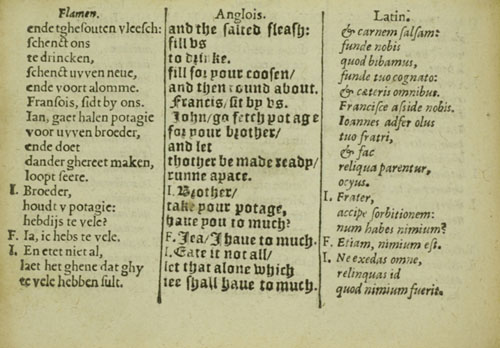 Flamen.
ende tghesouten vleesch:
schenct ons
te drincken,
schenct uvven neue,
ende voort alomme.
Fransois, sidt by ons.
Ian, gaet halen potagie
voor uvven broeder,
ende doet
dander ghereet maken,
loopt seere.
I. Broeder,
houdt v potagie:
hebdijs te vele?
F. Ia, ic hebs te vele.
I. En etet niet al,
laet het ghene dat ghy
te vele hebben sult.
Anglois.
and the salted fleash:
fill vs
to drinke.
fill for your coosen/
and then round about.
Francis/ sit by vs.
John/ go fetch potage
for your brother/
and let
thother be made ready/
runne apace.
I. Brother/
take your potage,
haue you to much?
F. Yea/ I haue to much.
I. Eate it not all/
let that alone which
yee shall haue to much.
Latin.
& carnem salsam:
funde nobis
quod bibamus,
funde tuo cognato:
& cæteris omnibus.
Francisce asside nobis.
Ioannes adfer olus
tuo fratri,
& fac
reliqua parentur,
ocyus.
I. Frater,
accipe sorbitionem:
num habes nimium?
F. Etiam, nimium est.
I. Ne exedas omne,
relinquas id
quod nimium fuerit.